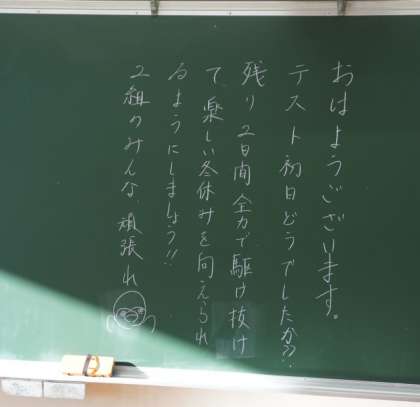 おはようございます。
テスト初日どうでしたか??
残り2日間全力で駆け抜け
て楽しい冬休みを向えられ
るようにしましょう!!
2組のみんな、頑張れ